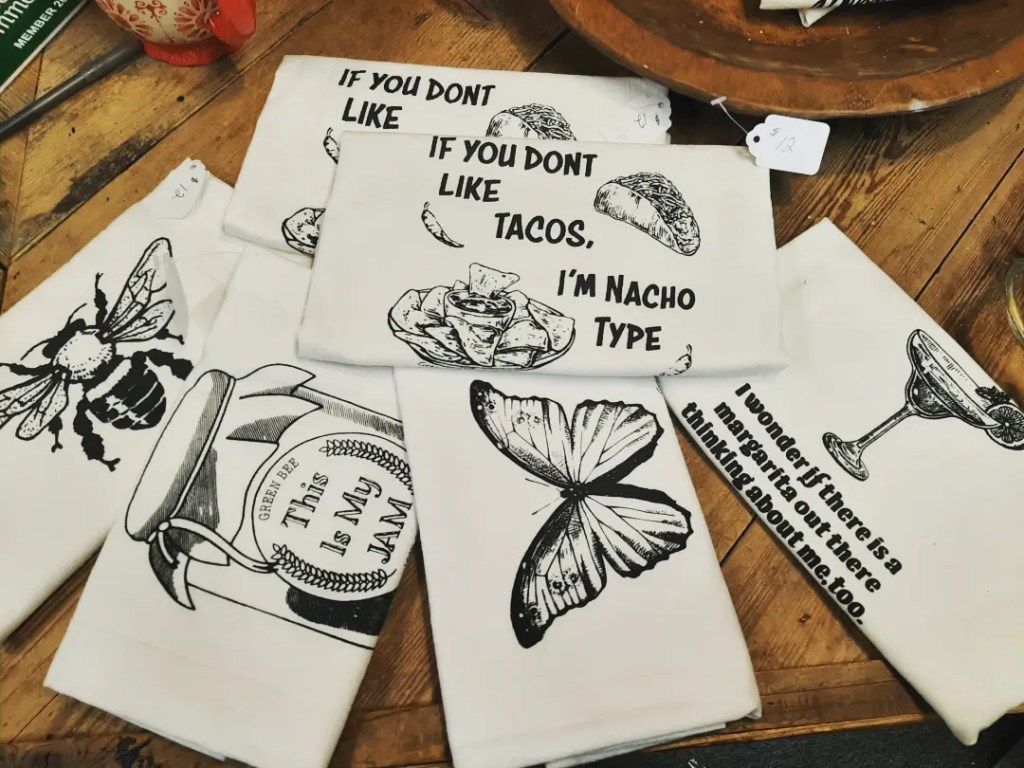 MEMBER 20
IF YOU DONT
LIKE
IF YOU DONT
LIKE
TACOS,
I'M NACHO
TYPE
$12
$12
GREEN BEE
This
Is My
JAM
I wonder if there is a
margarita out there
thinking about me, too.